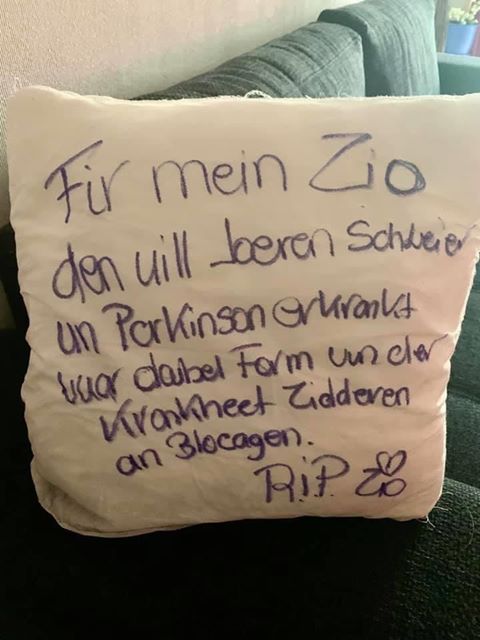 Fir mein Zio
den vill Joeren Schweier
un Parkinson erkrankt
war dubel Form vun der
Krankheet Zidderen
an Blocagen.
R.i.P. Zio